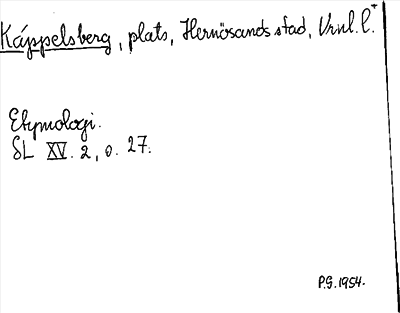 Käppelsberg, plats, Hernösands stad, Vrnl. l.+
Etymologi.
SL XV. 2, o. 27.
P.G. 1954.